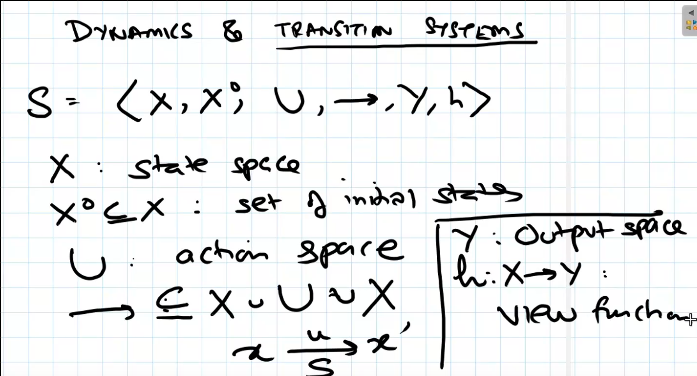 DYNAMICS & TRANSITION SYSTEMS
S = ⟨X, X⁰, U, →, Y, h⟩
X : state space
X⁰ ⊆ X : set of initial states
U : action space
→ ⊆ X × U × X
x —u→ x'
S
Y : Output space
h : X → Y :
VIEW function